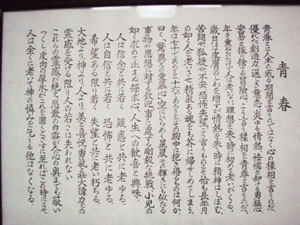 青春
青春とは人生の或る期間を言うのではなく心の様相を言うのだ
優れた創造力逞しき意志炎ゆる情熱怯懦を却ける勇猛心
安易を振り捨てる冒険心こう言う様相を青春と言うのだ
年を重ねただけで人は老いない理想を失う時に初めて老いがくる
歳月は皮膚のしわを増すが情熱を失う時に精神はしぼむ
苦悶や狐疑や不安恐怖失望こう言うものこそ恰も長年月
の如く人を老いさせ精気ある魂をも芥に帰せしめてしまう
年は七十であろうと十六であろうとその胸中に抱き得るものは何か
曰く驚異への愛慕心空にひらめく星晨その輝きにも似たる
事物や思想に対する欽仰事に處する剛毅な挑戦小児の
如く求めて止まぬ探求心人生への歓喜と興味
人は信念と共に若く疑惑と共に老ゆる
人は自信と共に若く恐怖と共に老ゆる
希望ある限り若く失望と共に老い朽ちる
大地より神より人より美と喜悦勇気と壮大偉力の
霊感を受ける限り人の若さは失われない
これらの霊感が絶え悲嘆の白雪が人の心の奥までも蔽い
つくし皮肉の厚氷がこれを固くとざすに至ればこの時にこそ
人は全くに老いて神の憐れみを乞う他はなくなる